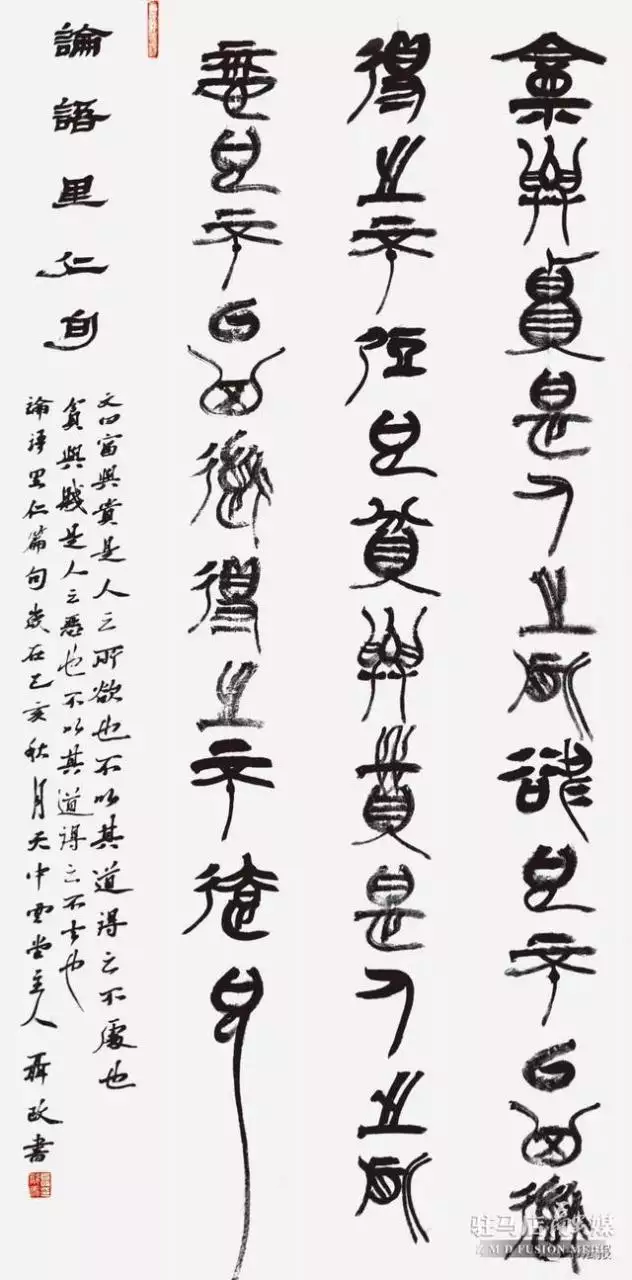 富與貴是人之所欲也不以其道
得之不處也貧與賤是人之所
惡也不以其道得之不去也
論語里仁句
文曰富與貴是人之所欲也不以其道得之不處也
貧與賤是人之惡也不以其道得之不去也
論語里仁篇句歲在己亥秋月天中雲堂主人聶政書
驻马店融媒
Z M D FUSION MEDIA